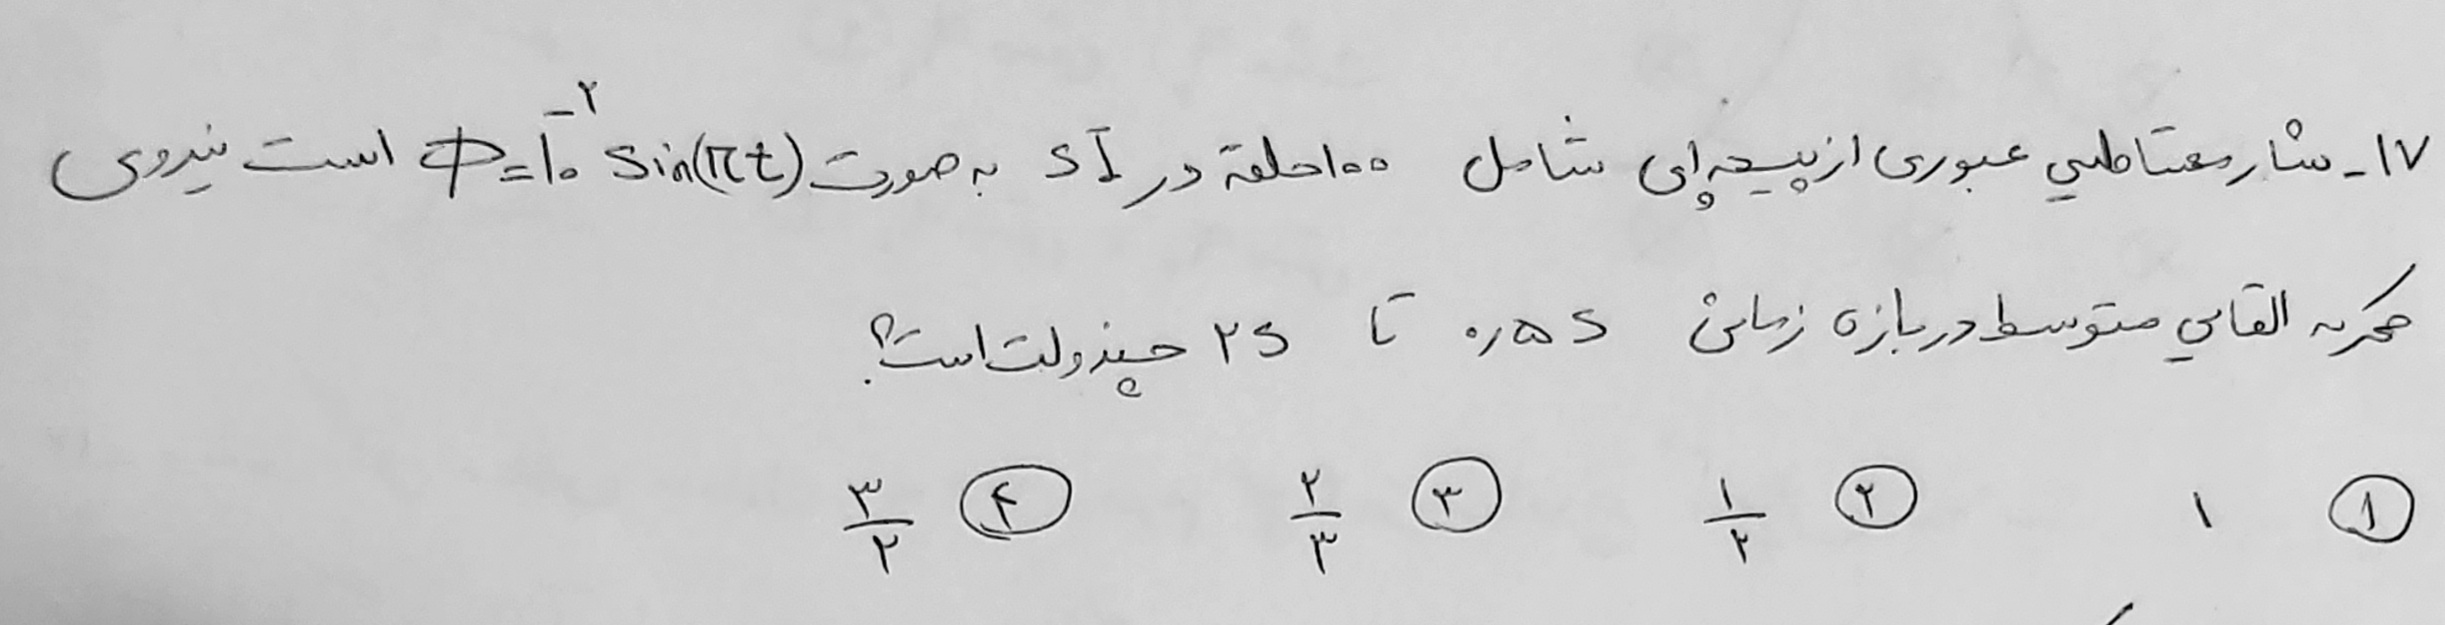 ۱۷- شار مغناطیسی عبوری از پیچه‌ای شامل ۱۰۰ حلقه در SI به صورت Φ=۱۰⁻² Sin(πt) است نیروی
محرکه القایی متوسط در بازه زمانی ۰٫۵ s تا ۲ s چند ولت است؟
① ۱ ② ۱/۲ ③ ۲/۳ ④ ۳/۲